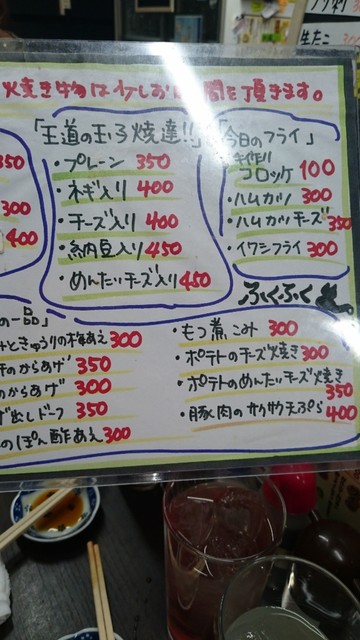 焼き物は少しお時間を頂きます。
350
300
400
「王道の玉子焼達!!」
・プレーン 350
・ネギ入り 400
・チーズ入り 400
・納豆入り 450
・めんたいチーズ入り 450
「今日のフライ」
・手作りコロッケ 100
・ハムカツ 300
・ハムカツチーズ 350
・イワシフライ 300
ふくふく
の一品」
ときゅうりの梅あえ 300
のからあげ 350
のからあげ 300
げ出しドーフ 350
のぽん酢あえ 300
・もつ煮こみ 300
・ポテトのチーズ焼き 300
・ポテトのめんたいチーズ焼き 350
・豚肉のサクサク天ぷら 400